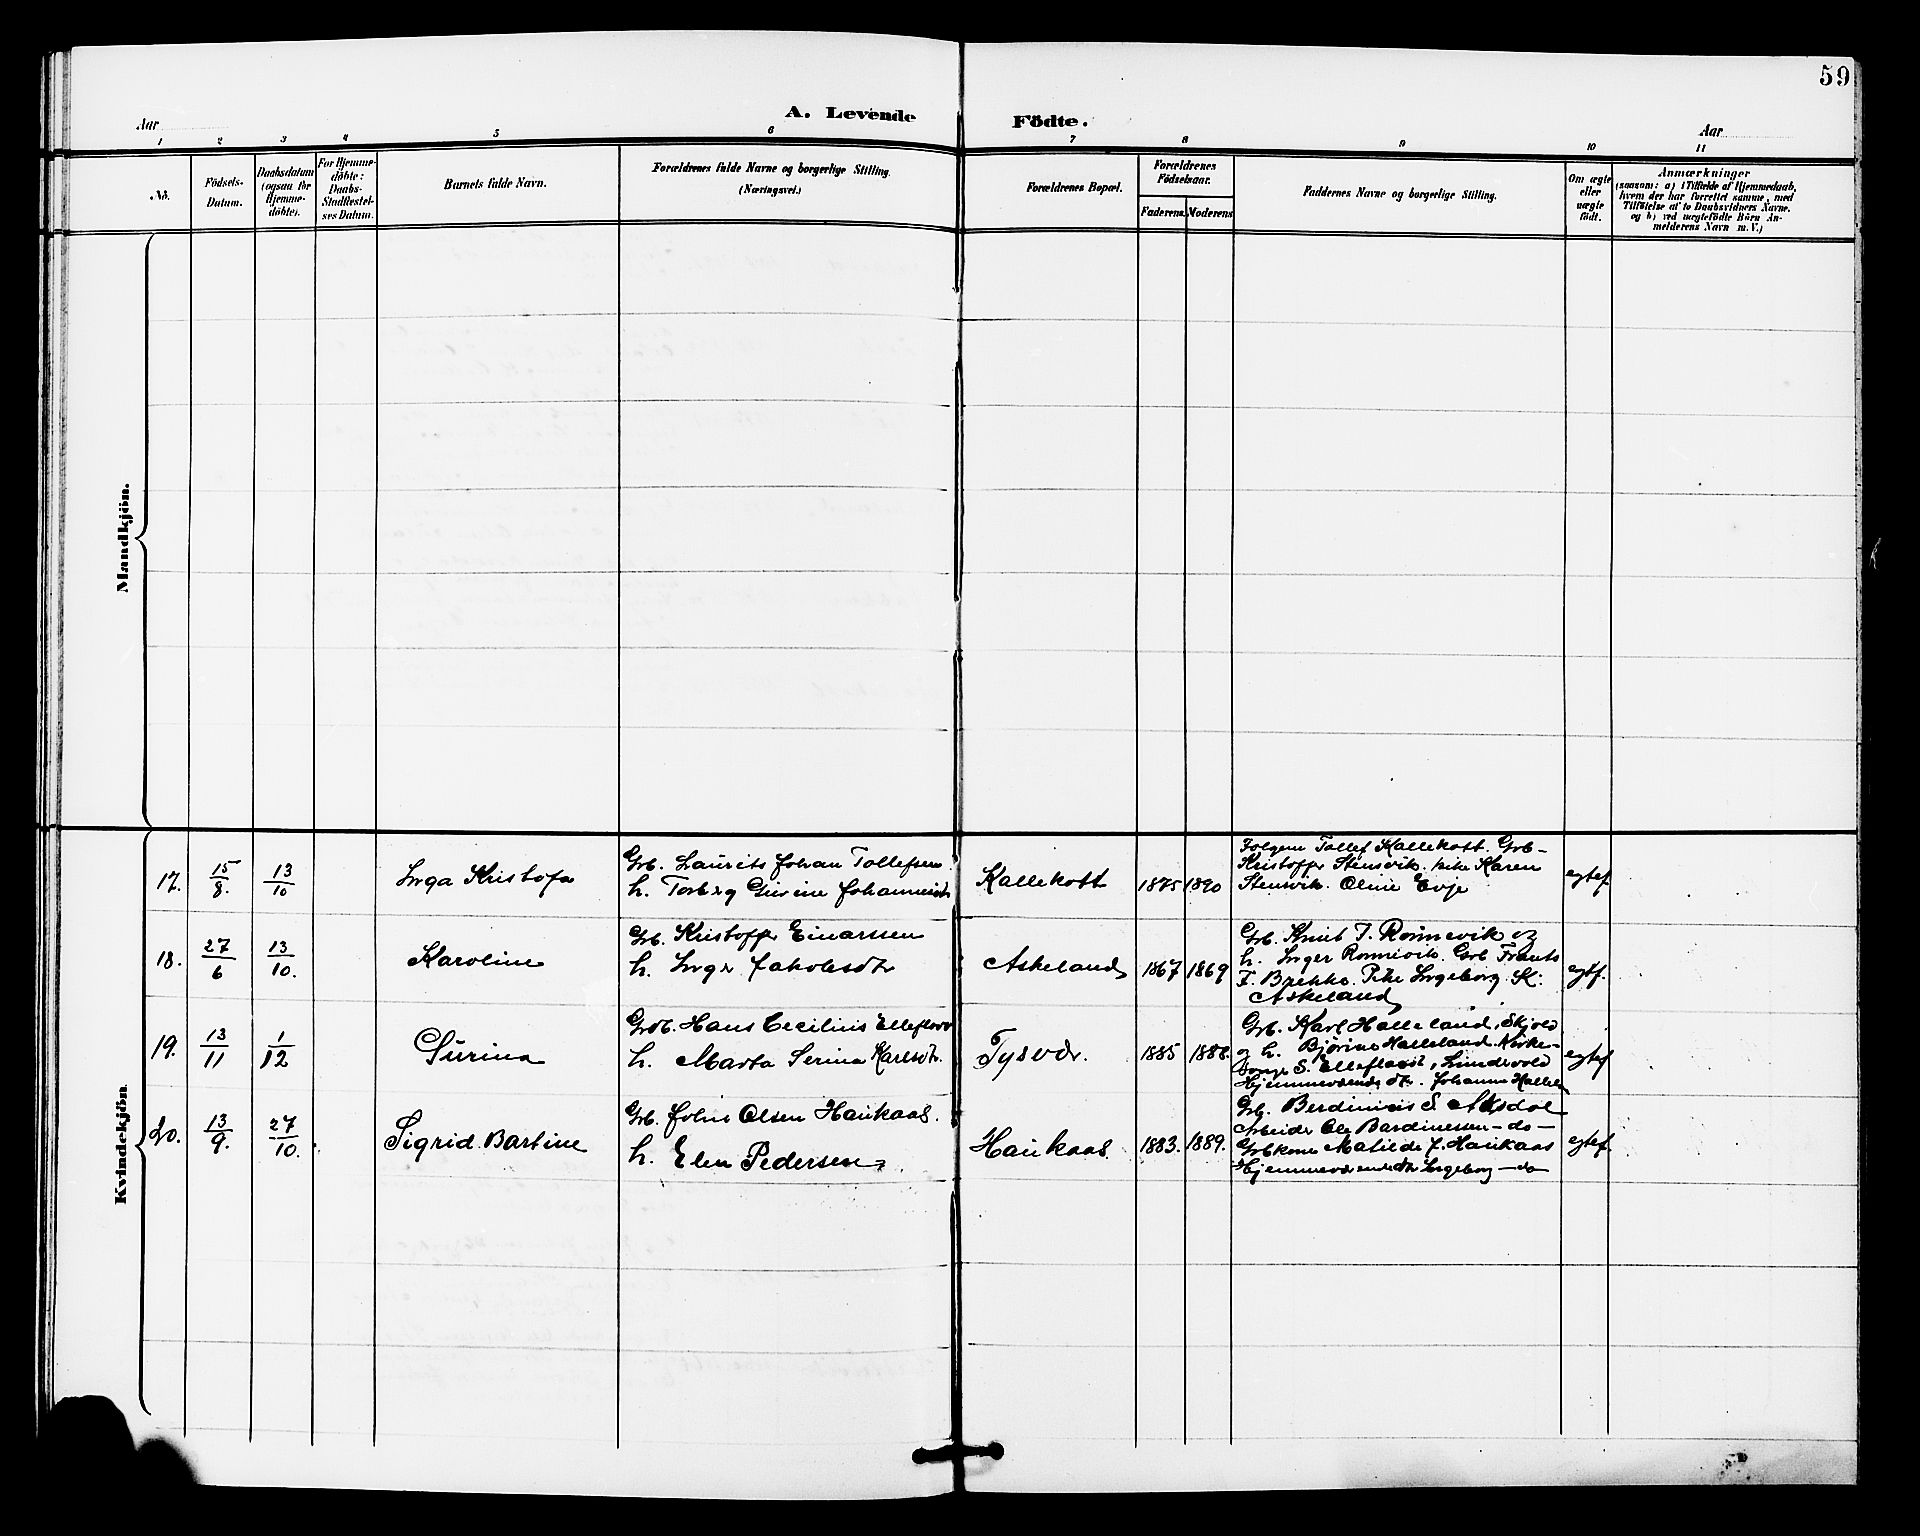 59
A. Levende Födte.
Aar
Aar
1 2 3 4 5 6 7 8 9 10 11
No.
Födsels-Datum.
Daabsdatum (ogsaa for Hjemme-döbte).
For Hjemme-döbte: Daabs-Stadfæstel-ses Datum.
Barnets fulde Navn.
Forældrenes fulde Navne og borgerlige Stilling. (Næringsvei.)
Forældrenes Bopæl.
Forældrenes Födselsaar.
Faderens. Moderens
Faddernes Navne og borgerlige Stilling.
Om ægte eller uægte födt.
Anmærkninger
(saasom: a) i Tilfælde af Hjemmedaab,
hvem der har forrettet samme, med
Tilföielse af to Daabsvidners Navne,
og b) ved uægtefödte Börn An-
melderens Navn m. V.)
Mandkjön.
Kvindekjön
17. 15/8. 13/10 Inga Kristofa
Grb. Laurits Johan Tollefsen
h. Torborg Gurine
Kallekott 1875 1890
Tollef Kallekott. Grb-
Kristoffer Stensvik. pike Karen
Stensvik. Oline Evje
egtef
18. 27/6 13/10. Karoline
Grb. Kristoffer Einarssen
h. Inger Jakobsdtr
Askeland 1867 1869
Grb. Knut T. Rønnevik og
h. Inger Rønnevik. Grb Frants
F. Brekke. Pike Ingeborg K.
Askeland
egtf.
19. 13/11 1/12 Surina
Grdb. Hans Cecilius
h. Marta Serina Karlsdtr.
Tysvær. 1885 1888.
Grb. Karl Halleland, Skjold
og h. Bjørine Halleland. Kirke-
S. Elleflaat,
Hjemmeværende dtr. Johanna
egtef
20. 13/9. 27/10. Sigrid Bartine
Grb. Johs Olsen Haukaas.
h. Elen Pedersen
Haukaas 1883. 1889.
Grb. Berdinius S. Aksdal
Arbeider Ole Bardinessen – do –
Grbkone Matilde J. Haukaas
Hjemmeværende dtr Ingeborg – do
egtef.